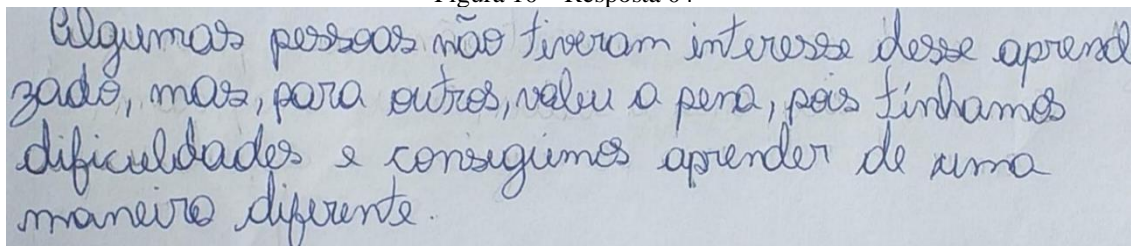 Algumas pessoas não tiveram interesse desse aprend
zado, mas, para outros, valeu a pena, pois tínhamos
dificuldades e conseguimos aprender de uma
maneira diferente.